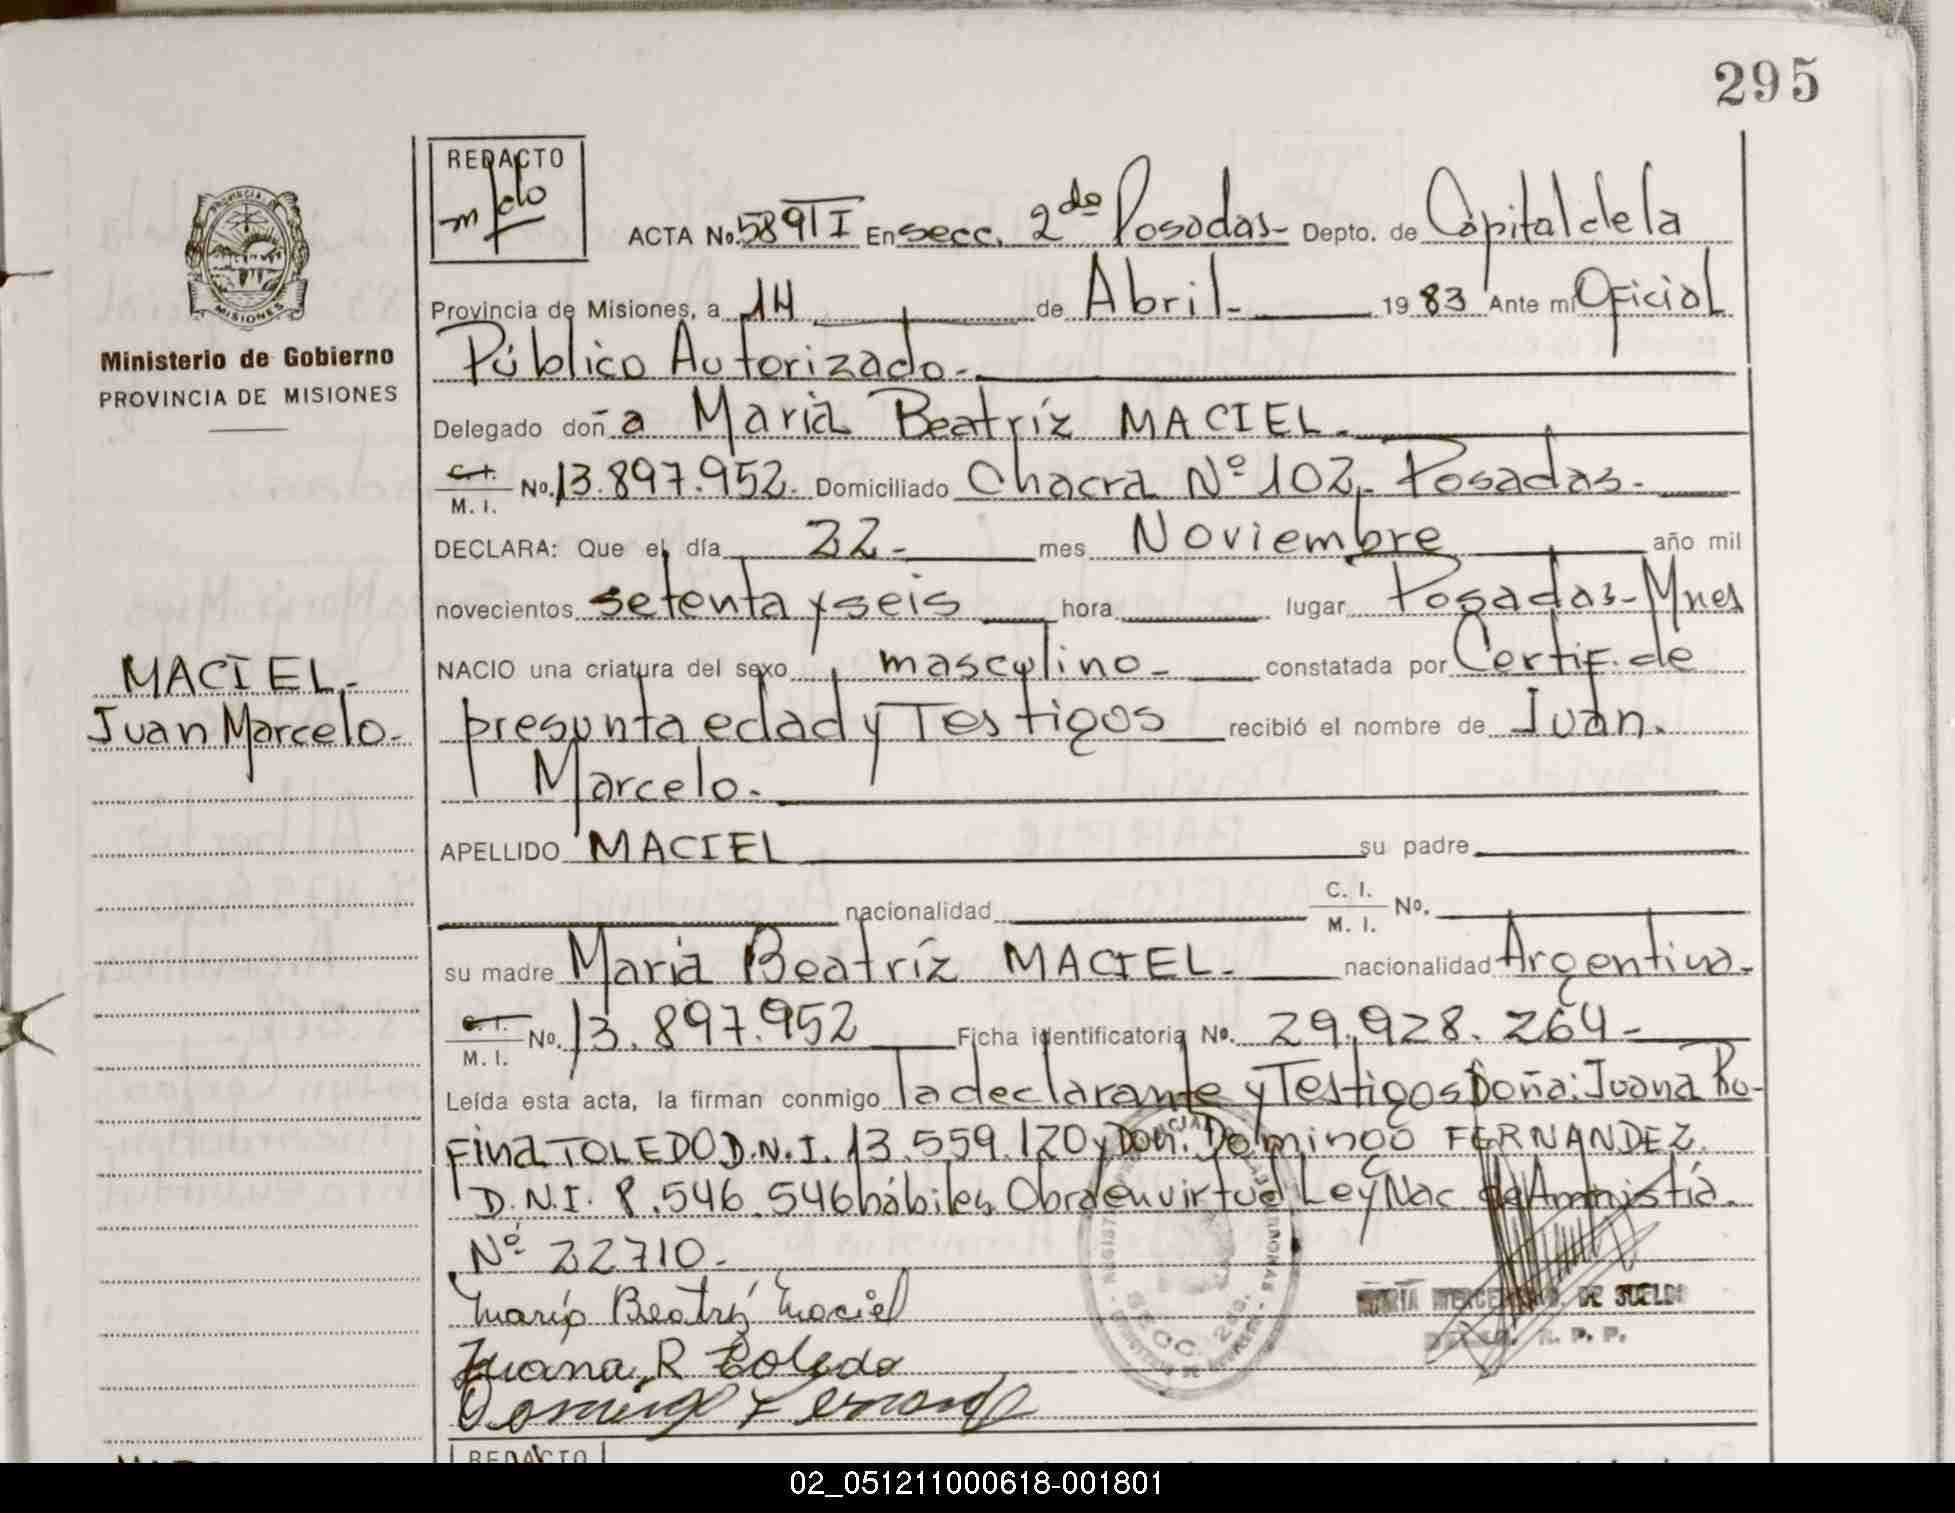 295
REDACTO
PROVINCIA DE
MISIONES
Ministerio de Gobierno
PROVINCIA DE MISIONES
MACIEL.-
Juan Marcelo.-
ACTA No. 589 TI En secc. 2da Posadas- Depto. de Capital de la
Provincia de Misiones, a 14 de Abril.- 1983 Ante mí Oficial
Público Autorizado.-
Delegado doña María Beatríz MACIEL.-
C.I. M. I. No. 13.897.952.- Domiciliado Chacra Nº 102,- Posadas.-
DECLARA: Que el día 22- mes Noviembre año mil
novecientos setenta y seis hora lugar Posadas- Mnes
NACIO una criatura del sexo masculino- constatada por Certif. de
presunta edad y Testigos recibió el nombre de Juan.
Marcelo.-
APELLIDO MACIEL su padre
nacionalidad C. I. M. I. No.
su madre María Beatríz MACIEL.- nacionalidad Argentina.-
C. I. M. I. No. 13.897.952 Ficha identificatoria No. 29.928.264-
Leída esta acta, la firman conmigo la declarante y Testigos Doña: Juana Ru-
fina TOLEDO D.N.I. 13.559.120 y Don: Domingo FERNANDEZ.
D.N.I. 8.546.546 hábiles Obra en virtud Ley Nac de Amnistía.
Nº 22710.-
María Beatríz Maciel
Juana R Toledo
Domingo Fernandez
SECC. 2da.
DE SUELDO
R. P. P.
REDACTO
02_051211000618-001801